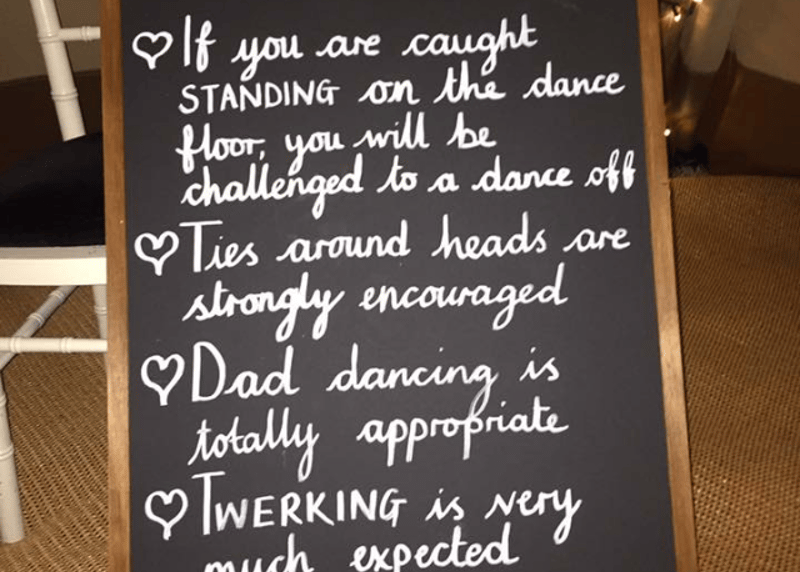 ♡ If you are caught
STANDING on the dance
floor, you will be
challenged to a dance off
♡ Ties around heads are
strongly encouraged
♡ Dad dancing is
totally appropriate
♡ TWERKING is very
much expected